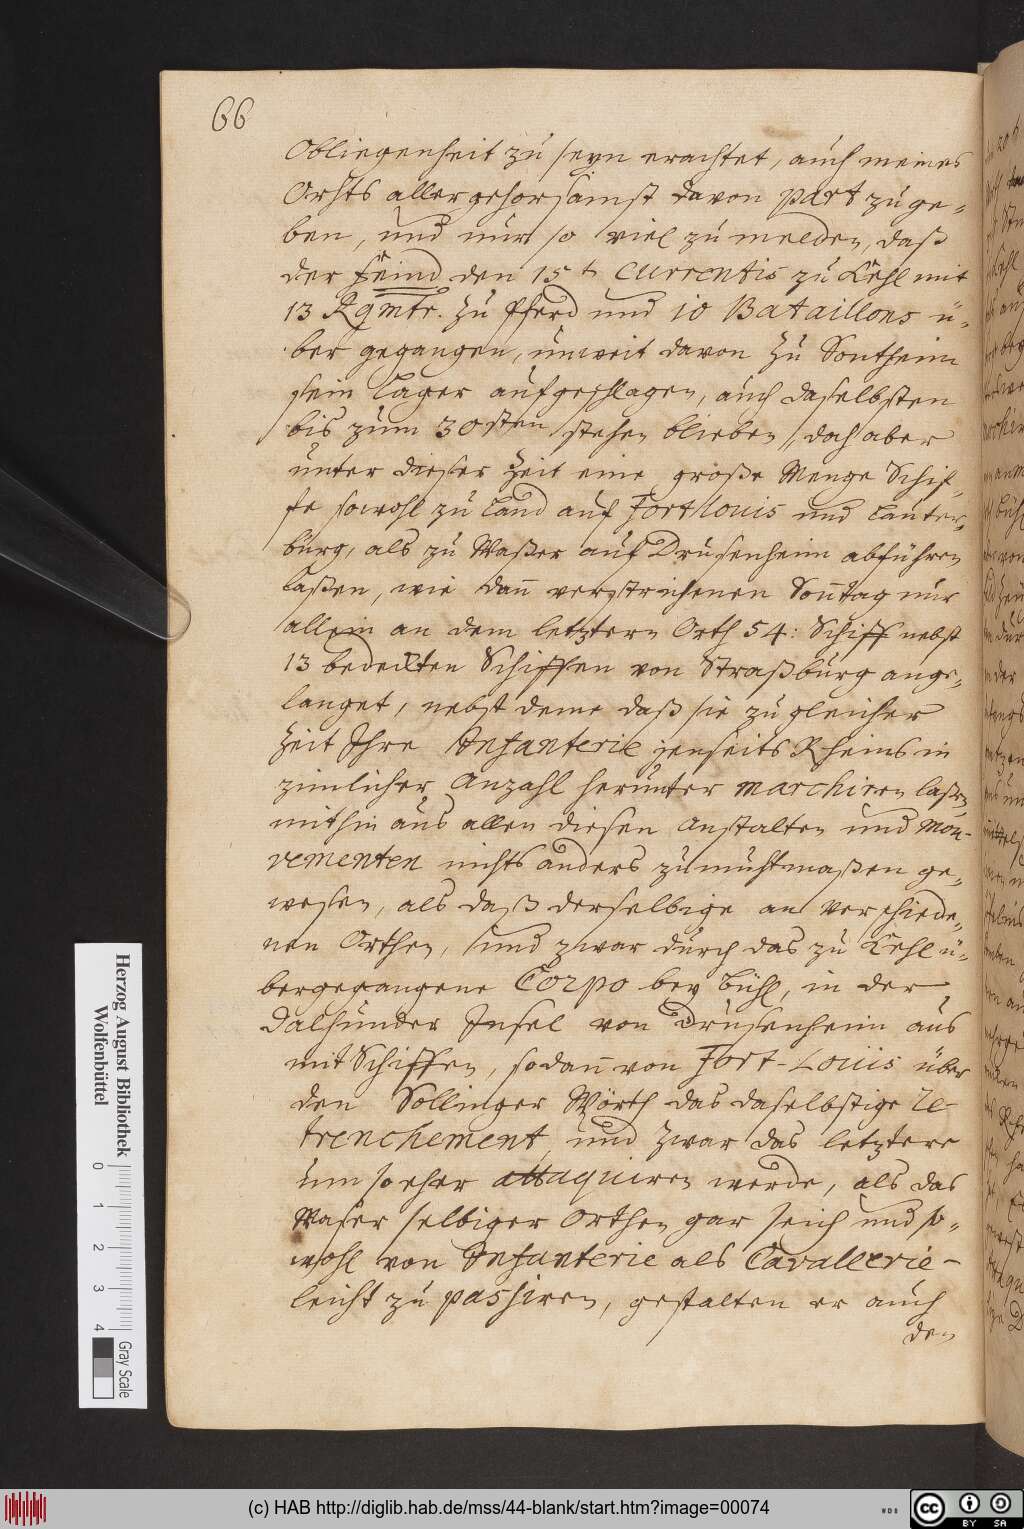 66
Obliegenheit zu seyn erachtet, auch meines
Orhts allergehorsamst davon part zu ge-
ben, und nur so viel zu melden, daß
der Feind den 15t currentis zu Kehl mit
13 Rgmtr. zu Pferd und 10 Bataillons ü-
ber gegangen, unweit davon zu Sontheim
sein Lager aufgeschlagen, auch daselbsten
bis zum 30sten stehen blieben, doch aber
unter dieser Zeit eine große Menge Schif-
fe sowohl zu Land auf Fortlouis und Lauter-
burg, als zu Waßer auf Drusenheim abführen
laßen, wie dann verstrichenen Sonntag nur
allein an dem letztern Orth 54: Schiff nebst
13 bedeckten Schiffen von Straßburg ange-
langet, nebst deme daß sie zu gleicher
Zeit Ihre Infanterie jenseits Rheins in
zimlicher Anzahl herunter marchiren laßen,
mithin aus allen diesen Anstalten und Mou-
vementen nichts anders zu muhtmaßen ge-
wesen, als daß derselbige an verschiede-
nen Orthen, und zwar durch das zu Kehl ü-
bergegangene Corpo bey Bühl, in der
Dalhunder Insel von Drusenheim aus
mit Schiffen, sodann von Fort-Louis über
den Sollinger Wörth das daselbstige Re-
trenchement, und zwar das letztere
um so eher attaquiren werde, als das
Waser selbiger Orthen gar seich und so-
wohl von Infanterie als Cavallerie
leicht zu passiren, gestalten er auch
den
Herzog August Bibliothek
Wolfenbüttel
0 1 2 3 4
Gray Scale
(c) HAB http://diglib.hab.de/mss/44-blank/start.htm?image=00074
WDB
cc BY SA